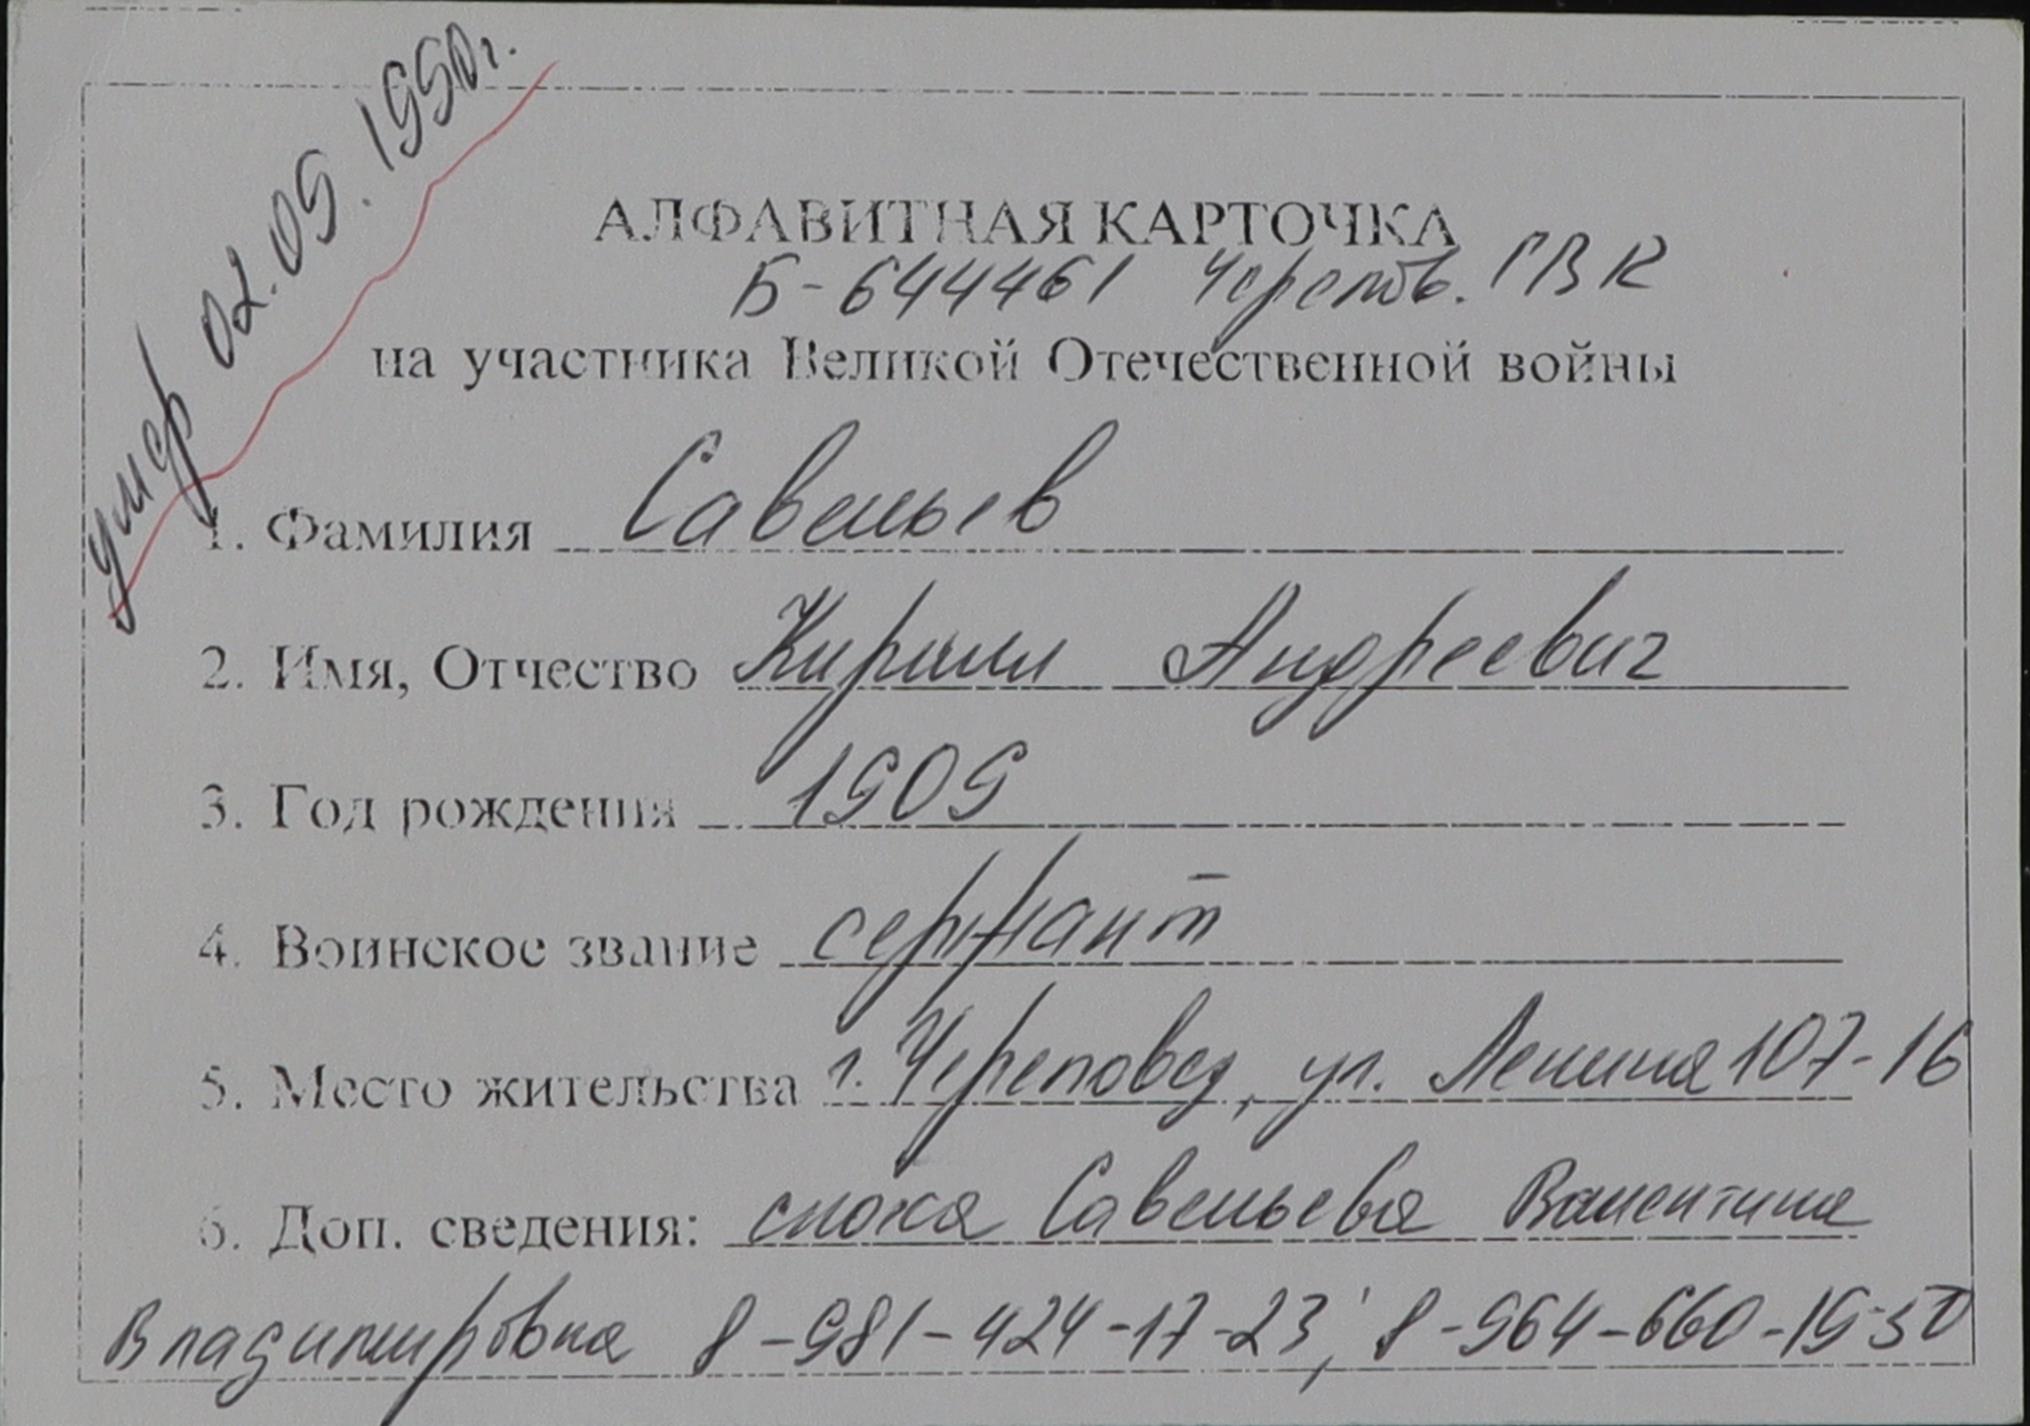 умер 02.09.1990г.
АЛФАВИТНАЯ КАРТОЧКА
Б-644461 Черепов. ГВК
на участника Великой Отечественной войны
1. Фамилия Савельев
2. Имя, Отчество Кирилл Андреевич
3. Год рождения 1909
4. Воинское звание сержант
5. Место жительства г. Череповец, ул. Ленина 107-16
6. Доп. сведения: сноха Савельева Валентина
Владимировна 8-981-424-17-23; 8-964-660-19-50